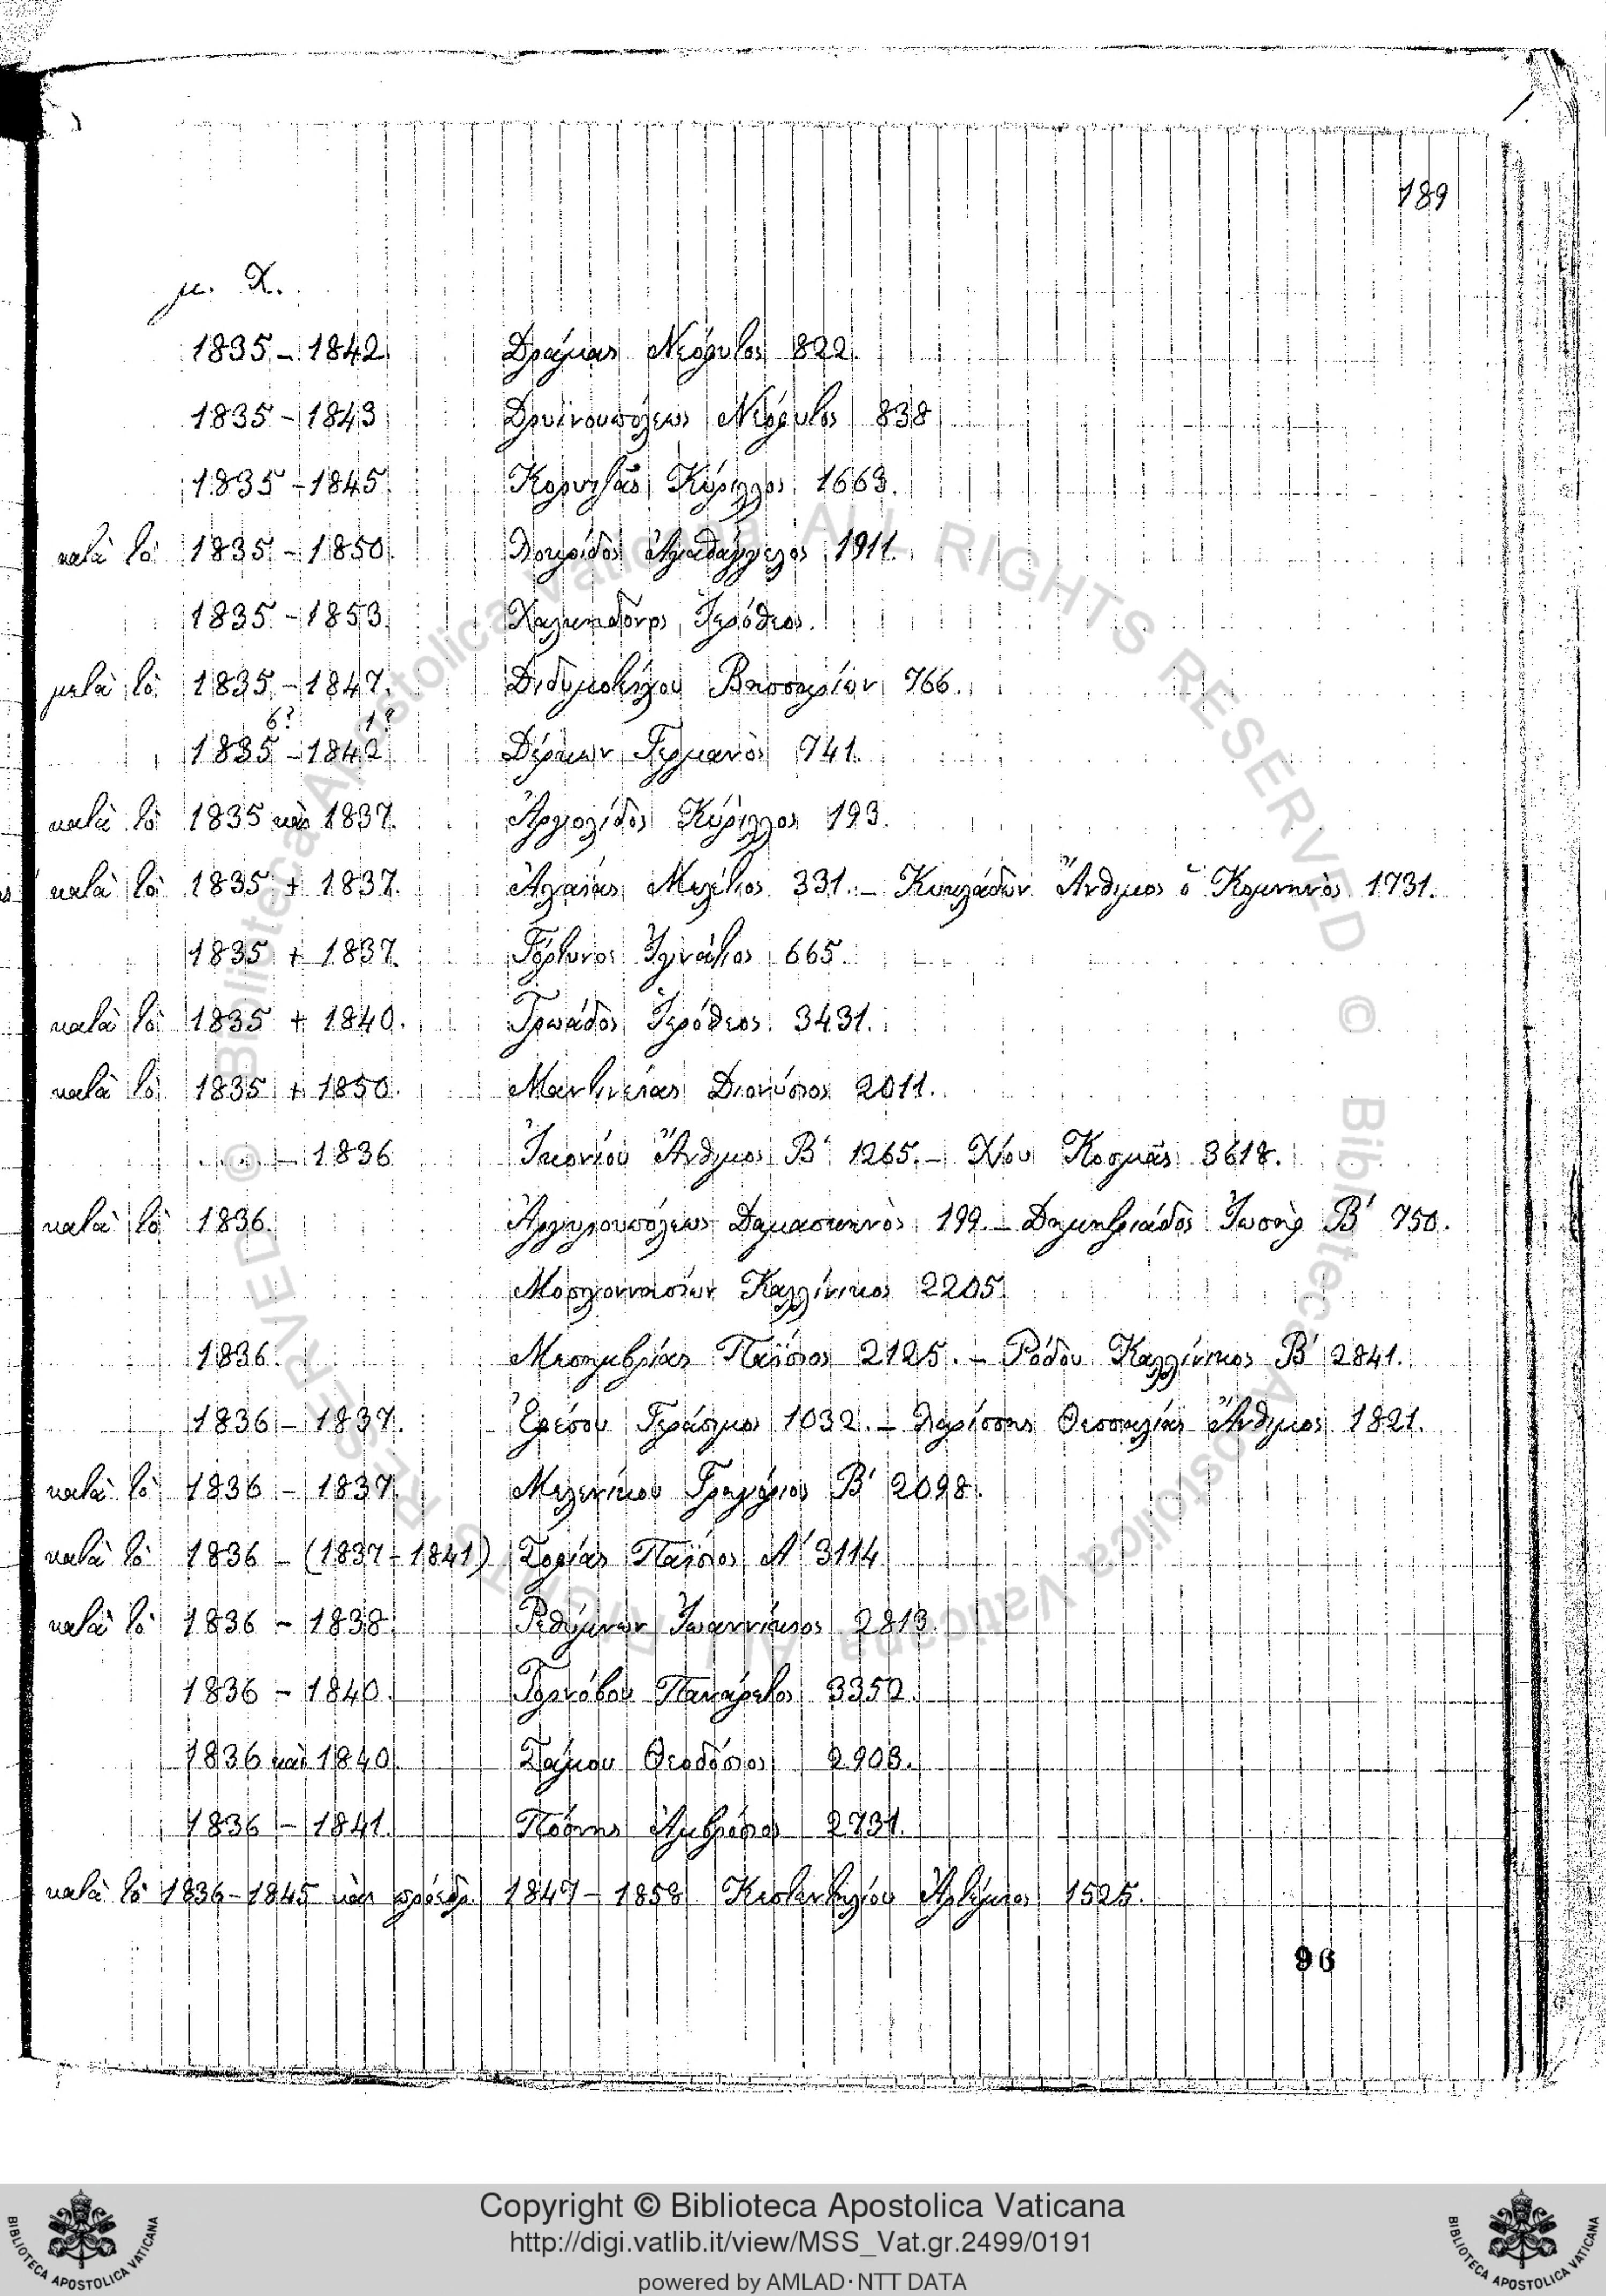 189
μ. Χ.
1835 – 1842 Δράμας Νεόφυτος 822.
1835 – 1843 Δρυϊνουπόλεως Νεόφυτος 838
1835 – 1845. Κορυτσᾶς Κύριλλος 1663.
κατὰ τὸ 1835 – 1850. Λοκρίδος Ἀγαθάγγελος 1911.
1835 – 1853. Χαλκηδόνος Ἱερόθεος.
μετὰ τὸ 1835 – 1847. Διδυμοτείχου Βησσαρίων 766.
6? 1?
1835 – 1842 Δέρκων Γερμανὸς 741.
κατὰ τὸ 1835 καὶ 1837. Ἀργολίδος Κύριλλος 193.
κατὰ τὸ 1835 + 1837. Ἀχαΐας Μελέτιος 331. – Κυκλάδων Ἄνθιμος ὁ Κομνηνὸς 1731.
1835 + 1837. Γόρτυνος Ἰγνάτιος 665.
κατὰ τὸ 1835 + 1840. Τρῳάδος Ἱερόθεος 3431.
κατὰ τὸ 1835 + 1850. Μαντινείας Διονύσιος 2011.
..... – 1836 Ἰκονίου Ἄνθιμος Β΄ 1265. – Χίου Κοσμᾶς 3618.
κατὰ τὸ 1836. Ἀργυρουπόλεως Δαμασκηνὸς 199. – Δημητριάδος Ἰωσὴφ Β΄ 750.
Μοσχονησίων Καλλίνικος 2205
1836. Μεσημβρίας Παΐσιος 2125. – Ῥόδου Καλλίνικος Β΄ 2841.
1836 – 1837. Ἐφέσου Γεράσιμος 1032. – Λαρίσσης Θεσσαλίας Ἄνθιμος 1821.
κατὰ τὸ 1836 – 1837. Μελενίκου Γρηγόριος Β΄ 2098.
κατὰ τὸ 1836 – (1837 – 1841) Σοφίας Παΐσιος Α΄ 3114
κατὰ τὸ 1836 – 1838. Ῥεθύμνων Ἰωαννίκιος 2813.
1836 – 1840. Τορνόβου Πανάρετος 3352.
1836 καὶ 1840. Σάμου Θεοδόσιος 2903.
1836 – 1841. Πόρτης Ἀμβρόσιος 2731.
κατὰ τὸ 1836 – 1845 καὶ πρόεδρ. 1847 – 1858 Κιστεντηλίου Ἀρτέμιος 1525.
96
Copyright © Biblioteca Apostolica Vaticana
http://digi.vatlib.it/view/MSS_Vat.gr.2499/0191
powered by AMLAD·NTT DATA